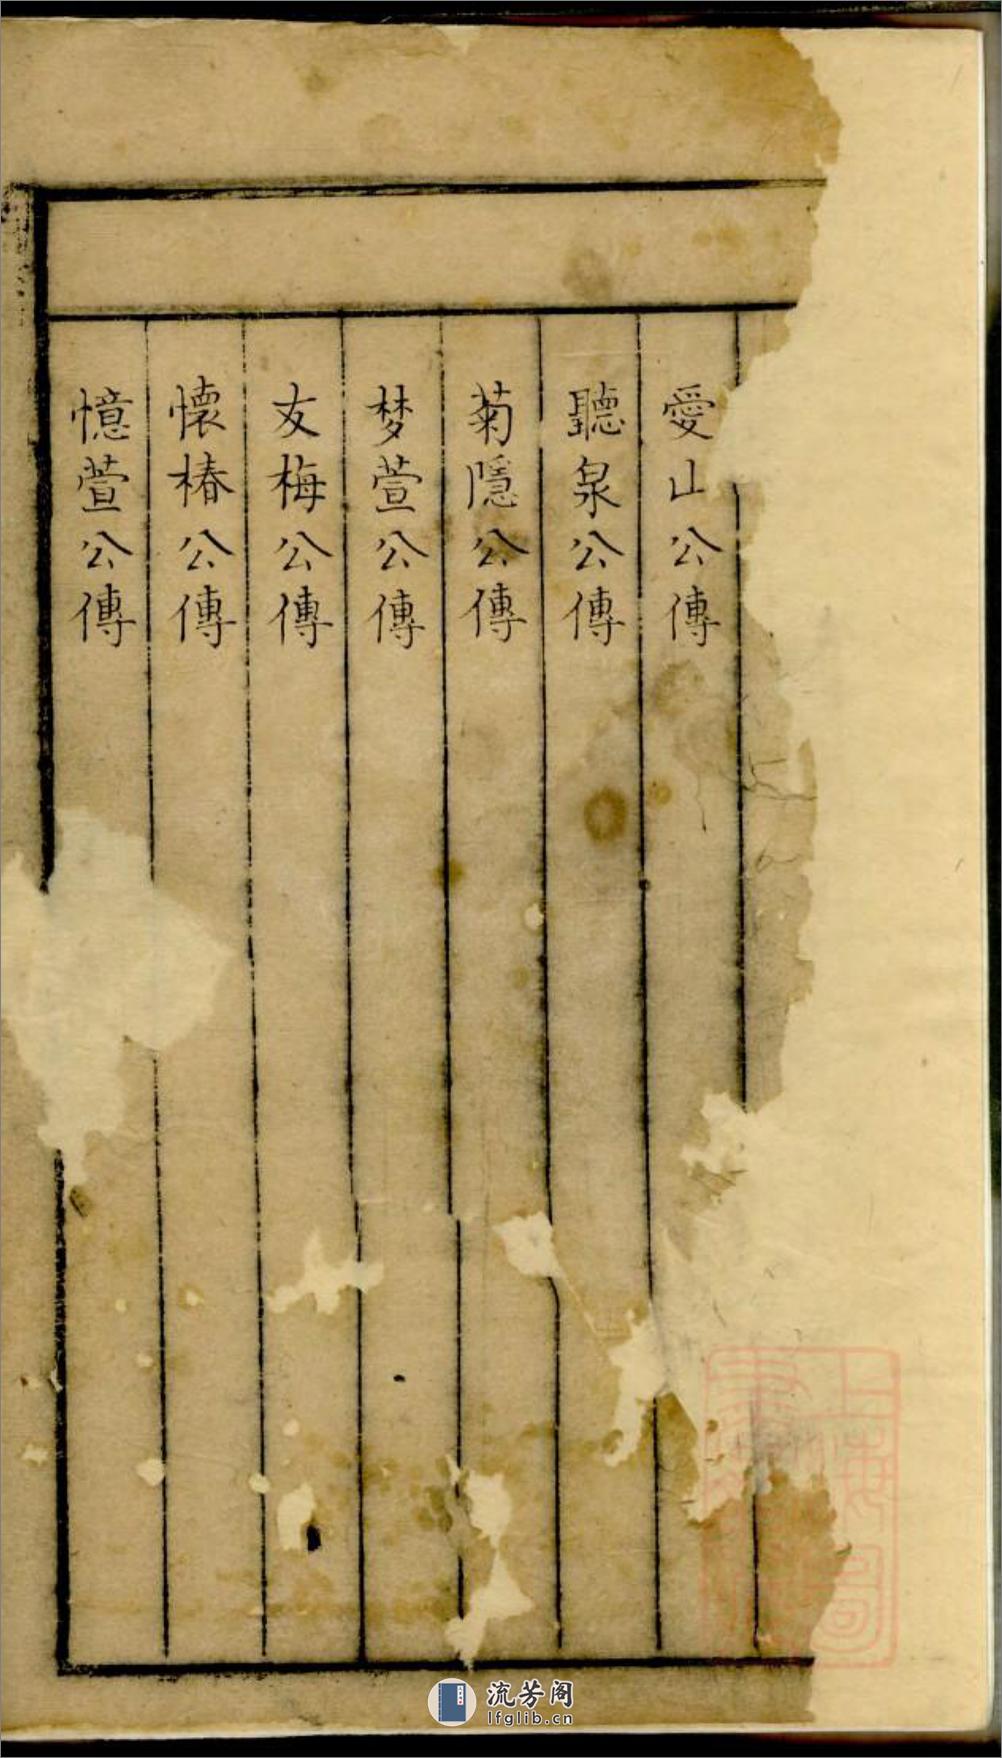 愛山公傳
聽泉公傳
菊隱公傳
梦萱公傳
友梅公傳
懷椿公傳
憶萱公傳
流芳阁
lfglib.cn